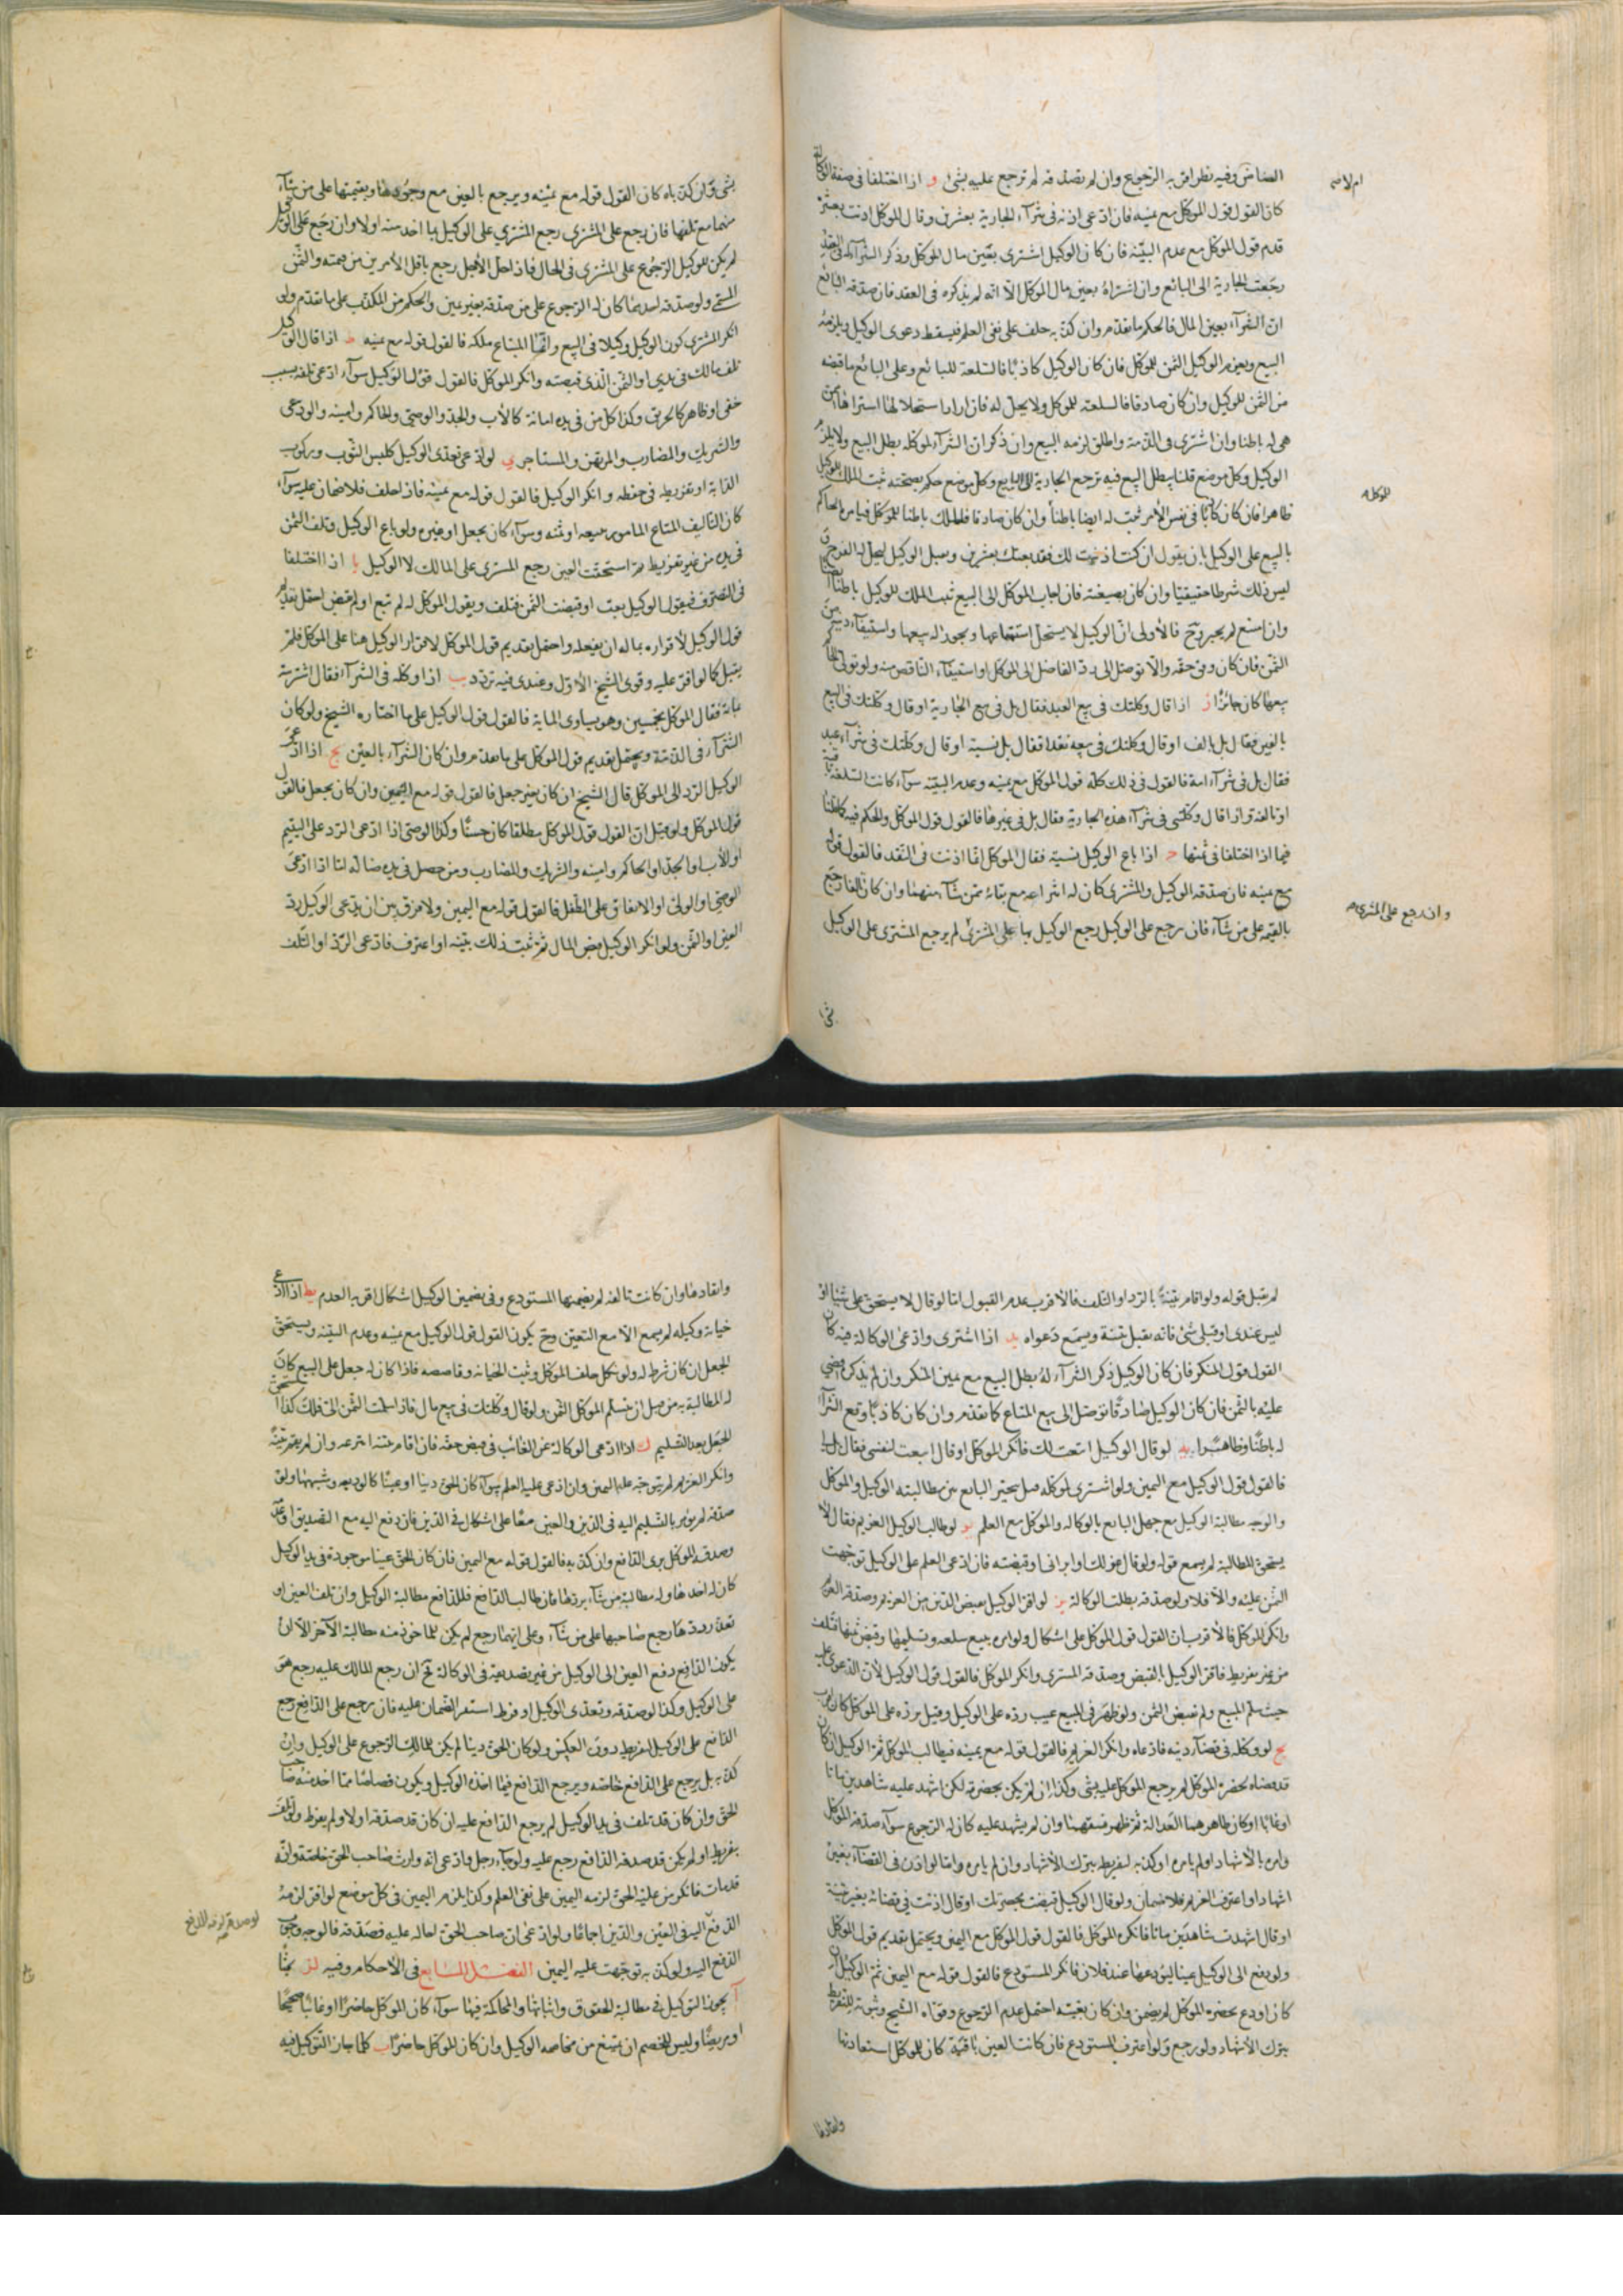 الضامن وفيه نظر اقربه الرجوع وان لم يصدقه لم ترجع عليه بشئ و اذا اختلفا فى صفة الوكالة
كان القول قول الموكل مع يمينه فان ادعى اذنه فى شرآء الجارية بعشرين وقال الموكل اذنت بعشرة
قدم قول الموكل مع عدم البينة فان كان الوكيل اشترى بعين مال الموكل وذكر الشرآء له فى العقد
رجعت الجارية الى البائع وان اشتراه بعين مال الموكل الا انه لم يذكره فى العقد فان صدقه البائع
ان الشرآء بعين المال فالحكم ما تقدم وان كذبه حلف على نفى العلم فيسقط دعوى الوكيل ويلزمه
البيع ويغرم الوكيل الثمن للموكل فان كان الوكيل كاذبا فالسلعة للبائع وعلى البائع ما قبضه
من الثمن للوكيل وان كان صادقا فالسلعة للموكل ولا يحل له فان اراد استحلالها اشتراها ممن
هى له باطنا وان اشترى فى الذمة واطلق لزمه البيع وان ذكر ان الشرآء لموكله بطل البيع ولا يلزم
الوكيل وكل موضع قلنا يبطل البيع فيه ترجع الجارية الى البايع وكل موضع حكم بصحته ثبت الملك للوكيل
ظاهرا فان كان كاذبا فى نفس الأمر ثبت له ايضا باطنا وان كان صادقا فالملك باطنا للموكل فيأمره الحاكم
بالبيع على الوكيل بان يقول ان كنت اذنت لك فقد بعتك بعشرين وسيل الوكيل ليحل له الفرج و
ليس ذلك شرطا حقيقيا وان كان بصيغته فان اجاب الموكل الى البيع ثبت الملك للوكيل باطنا ايضا
وان امتنع لم يجبر وح فالأولى ان الوكيل لا يستحل استمتاعها ويجوز له بيعها واستيفآء دينه من
الثمن فان كان وفق حقه والا توصل الى رد الفاضل الى الموكل او استيفآء الناقص منه ولو تولى الحاكم
بيعها كان جائزا ز اذا قال وكلتك فى بيع العبد فقال بل فى بيع الجارية او قال وكلتك فى البيع
بالفين فقال بل بالف او قال وكلتك فى بيعه نقدا فقال بل نسية او قال وكلتك فى شرآء عبد
فقال بل فى شرآء امة فالقول فى ذلك كله قول الموكل مع يمينه وعدم البينة سوآء كانت السلعة باقية
او تالفة واذا قال وكلتنى فى شرآء هذه الجارية فقال بل فى غيرها فالقول قول الموكل والحكم فيه كما قلنا
فيما اذا اختلفا فى ثمنها ح اذا باع الوكيل نسية فقال الموكل انما اذنت فى النقد فالقول قوله
مع يمينه فان صدقه الوكيل والمشترى كان له انتزاعه مع بقائه ممن شآء منهما وان كان تالفا رجع
بالقيمة على من شآء فان رجع على الوكيل رجع الوكيل بها على المشترى لم يرجع المشترى على الوكيل
للوكل
وان رجع على المشترى
بشئ وان كذباه كان القول قوله مع يمينه ويرجع بالعين مع وجودها وبقيمتها على من شآء
منهما مع تلفها فان رجع على المشترى رجع المشترى على الوكيل بما اخد منه اولا وان رجع على الوكيل
لم يكن للوكيل الرجوع على المشترى فى الحال فاذا حل الأجل رجع باقل الأمرين من قيمته والثمن
المسمى ولو صدقه احدهما كان له الرجوع على من صدقه بغير يمين والحكم من المكذب على ما تقدم ولو
انكر المشترى كون الوكيل وكيلا فى البيع وانما المبتاع ملكه فالقول قوله مع يمينه ط اذا قال الوكيل
تلف مالك فى يدى او الثمن الذى قبضته وانكر الموكل فالقول قول الوكيل سوآء ادعى تلفه بسبب
خفى او ظاهر كالحريق وكذا كل من فى يده امانة كالأب والجد والوصى والحاكم وامينه والودعى
والشريك والمضارب والمرتهن والمستاجر ى لو ادعى تعدى الوكيل كلبس الثوب وركوب
الدابة او تفريطه فى حفظه وانكر الوكيل فالقول قوله مع يمينه فاذا حلف فلا ضمان عليه سوآء
كان التاليف المتاع المأمور ببيعه او ثمنه وسوآء كان بجعل او غيره ولو باع الوكيل وتلف الثمن
فى يده من غير تفريط ثم استحقت العين رجع المشترى على المالك لا الوكيل يا اذا اختلفا
فى التصرف فيقول الوكيل بعت او قبضت الثمن فتلف ويقول الموكل له لم تبع او لم تقبض احتمل تقديم
قول الوكيل لأقراره بماله ان يفعله واحتمل تقديم قول الموكل لاقرار الوكيل هنا على الموكل فلم
يقبل كما لو اقر عليه وقوى الشيخ الأول وعندى فيه تردد يب اذا وكله فى الشرآء فقال اشتريته
بماية فقال الموكل بخمسين وهو يساوى الماية فالقول قول الوكيل على ما اختاره الشيخ ولو كان
الشرآء فى الذمة ويحتمل تقديم قول الموكل على ما تقدم وان كان الشرآء بالعين يج اذا ادعى
الوكيل الرد الى الموكل قال الشيخ ان كان بغير جعل فالقول قوله مع اليمين وان كان بجعل فالقول
قول الموكل ولو قيل ان القول قول الموكل مطلقا كان حسنا وكذا الوصى اذا ادعى الرد على اليتيم
او الأب او الجد او الحاكم وامينه والشريك والمضارب ومن حصل فى يده ضالة اما اذا ادعى
الوصى او الولى او الانفاق على الطفل فالقول قوله مع اليمين ولا فرق بين ان يدعى الوكيل رد
العين او الثمن ولو انكر الوكيل قبض المال ثم ثبت ذلك ببينه او اعترف فادعى الرد او التلف
لم يقبل قوله ولو اقام بينة بالرد او التلف فالأقرب عدم القبول اما لو قال لا يستحق على شيئا او
ليس عندى او قبلى شئ فانه يقبل بينة ويسمع دعواه يد اذا اشترى وادعى الوكالة فيه كان
القول قول المنكر فان كان الوكيل ذكر الشرآء له بطل البيع مع يمين المنكر وان لم يذكره قضى
عليه بالثمن فان كان الوكيل صادقا توصل الى بيع المتاع كما تقدم وان كان كاذبا وقع الشرآء
له باطنا وظاهرا يه لو قال الوكيل ابتعت لك فانكر الموكل او قال ابتعت لنفسى فقال بل لى
فالقول قول الوكيل مع اليمين ولو اشترى لموكله قيل يتخير البائع بين مطالبته الوكيل والموكل
والوجه مطالبة الوكيل مع جهل البائع بالوكالة والموكل مع العلم يو لو طالب الوكيل الغريم فقال لا
يستحق المطالبة لم يسمع قوله ولو قال عزلك او ابرانى او قبضته فان ادعى العلم على الوكيل توجهت
اليمين عليه والا فلا ولو صدقه بطلت الوكالة يز لو اقر الوكيل بقبض الدين من الغريم وصدقه الغريم
وانكر الموكل فالأقرب ان القول قول الموكل على اشكال ولو امره ببيع سلعة وتسليمها وقبض ثمنها فتلف
من غير تفريط فاقر الوكيل بالقبض وصدقه المشترى وانكر الموكل فالقول قول الوكيل لأن الدعوى عليه
حيث سلم المبيع ولم يقبض الثمن ولو ظهر فى المبيع عيب رده على الوكيل وقيل يرده على الموكل كان اقرب
يح لو وكله فى قضآء دينه فادعاه وانكر الغريم فالقول قوله مع يمينه فيطالب الموكل ثم الوكيل ان كان
قد قضاه بحضرة الموكل لم يرجع الموكل عليه بشئ وكذا ان لم يكن بحضرته لكن اشهد عليه شاهدين ماتا
او غابا او كان ظاهرهما العدالة ثم ظهر فسقهما وان لم يشهد عليه كان له الرجوع سوآء صدقه الموكل
وامره بالاشهاد او لم يامره او كذبه لتفريطه بترك الأشهاد وان لم يامره واما لو اذن فى القضآء بغير
اشهاد او اعترف الغريم فلا ضمان ولو قال الوكيل قبضت بحضرتك او قال اذنت فى قضائه بغير بينة
او قال اشهدت شاهدين ماتا فانكره الموكل فالقول قول الموكل مع اليمين ويحتمل تقديم قول الوكيل
ولو دفع الى الوكيل عينا ليودعها عند فلان فانكر المستودع فالقول قوله مع اليمين ثم الوكيل ان
كان اودع بحضرة الموكل لم يضمن وان كان بغيبته احتمل عدم الرجوع وقواه الشيخ وثبوته للتفريط
بترك الأشهاد ولو رجع ولو اعترف المستودع فان كانت العين باقية كان للموكل استعادتها
واتقادها
وانقادها وان كانت تالفة لم يضمنها المستودع وفى تضمين الوكيل اشكال اقربه العدم يط اذا ادعى
خيانة وكيله لم يسمع الا مع التعيين وح يكون القول قول الوكيل مع يمينه وعدم البينه ويستحق
الجعل ان كان شرط له ولو نكل حلف الموكل وثبت الخيانة وقاصصه فاذا كان له جعل على البيع كان
له المطالبة به من قبل ان يتسلم الموكل الثمن ولو قال وكلتك فى بيع مال فاذا سلمت الثمن الى فلك كذا استحق
الجعل بعد التسليم ك اذا ادعى الوكالة عن الغائب فى قبض حقه فان اقام بينة انتزعه وان لم يقم بينة
وانكر الغريم لم يتوجه عليه اليمين وان ادعى عليه العلم سوآء كان الحق دينا او عينا كالوديعة وشبهها ولو
صدقه لم يؤمر بالتسليم اليه فى الدين والعين معا على اشكال فى الدين فان دفع اليه مع التصديق او عدمه
وصدقه الموكل برى الدافع وان كذبه فالقول قوله مع اليمين فان كان الحق عينا موجودة فى يد الوكيل
كان له اخدها وله مطالبة من شآء بردها فان طالب الدافع فللدافع مطالبة الوكيل وان تلف العين او
تعذر ردها رجع صاحبها على من شآء وعلى ايهما رجع لم يكن للماخوذ منه مطالبة الآخر الا ان
يكون الدافع دفع العين الى الوكيل من غير تصديقه فى الوكالة ثم ان رجع المالك عليه رجع هو
على الوكيل وكذا لو صدقه وتعدى الوكيل او فرط استقر الضمان عليه فان رجع على الدافع رجع
الدافع على الوكيل لتفريطه دون العكس ولو كان الحق دينا لم يكن للمالك الرجوع على الوكيل وان
كذبه بل يرجع على الدافع خاصة ويرجع الدافع فيما اخذه الوكيل ويكون قصاصا مما اخد منه صاحب
الحق وان كان قد تلف فى يد الوكيل لم يرجع الدافع عليه ان كان قد صدقه اولا ولم يفرط ولو تلف
بتفريط او لم يكن قد صدقه الدافع رجع عليه ولو جآء رجل فادعى انه وارث صاحب الحق خاصة وانه
قد مات فانكر من عليه الحق لزمه اليمين على نفى العلم وكذا يلزم اليمين فى كل موضع لو اقر لزمه
الدفع اليه فى العين والدين اجماعا ولو ادعى ان صاحب الحق احاله عليه فصدقه فالوجه وجوب
لو صدقه لزمه الدفع
الدفع اليه ولو كذبه توجهت عليه اليمين الفصل السابع فى الأحكام وفيه لز بحثا
آ يجوز التوكيل فى مطالبة الحقوق واثباتها والمحاكمة فيها سوآء كان الموكل حاضرا او غائبا صحيحا
او مريضا وليس للخصم ان يمتنع من مخاصمة الوكيل وان كان الموكل حاضرا ب كلما جاز التوكيل فيه